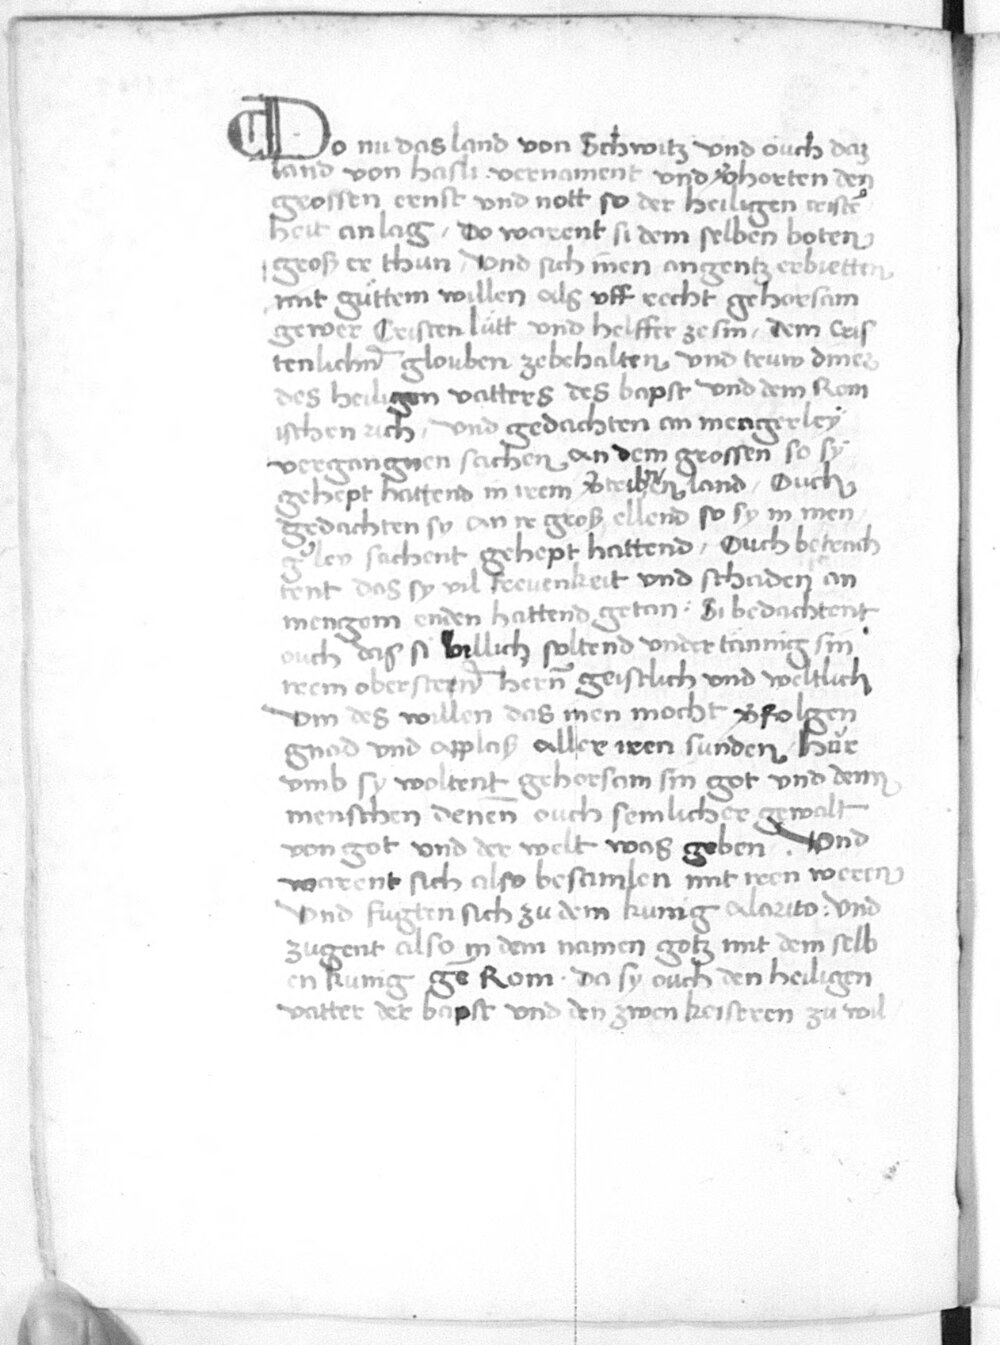 ¶ Do nu das land von Schwitz vnd ouch daz
land von hasli vernament vnd v̾horten den
grossen ernst vnd nott so der heiligen cristē
heit an lag / Do warent si dem selben boten
groß er thun / Vnd sich inen angentz erbietten
mit güttem willen als vff recht gehorsam
gewer Cristen lütt vnd helffer ze sin / dem Cris
tenlichen glouben ze behalten vnd truw diner
des heiligen vatters des bapst vnd dem Rom
ischen rich / vnd gedachten an mengerley
vergangnen sachen an dem grossen so sy
gehept hattend in irem v̾tribnen land / Ouch
gedachten sy an ir groß ellend so sy in men
gerley sachent gehept hattend / Ouch betrach
tent das sy vil frevenkeit vnd schaden an
mengem enden hattend getan : Si bedachtent
ouch das si billich soltend vndertännig sin
irem obersten hern̄ geistlich vnd weltlich
Vm des willen das inen mocht v̾folgen
gnad vnd applaß aller iren sunden / Hür
vmb sy woltent gehorsam sin got vnd denn
menschen denen ouch semlicher gewalt
von got vnd der welt was geben . Vnd
warent sich also besamlen mit iren weren
Vnd fugten sich zu dem kunig alarito : vnd
zugent also in dem namen gotz mit dem selb
en kunig gē Rom . Da sy ouch den heiligen
vatter der bapst vnd den zwen keiseren zu wil